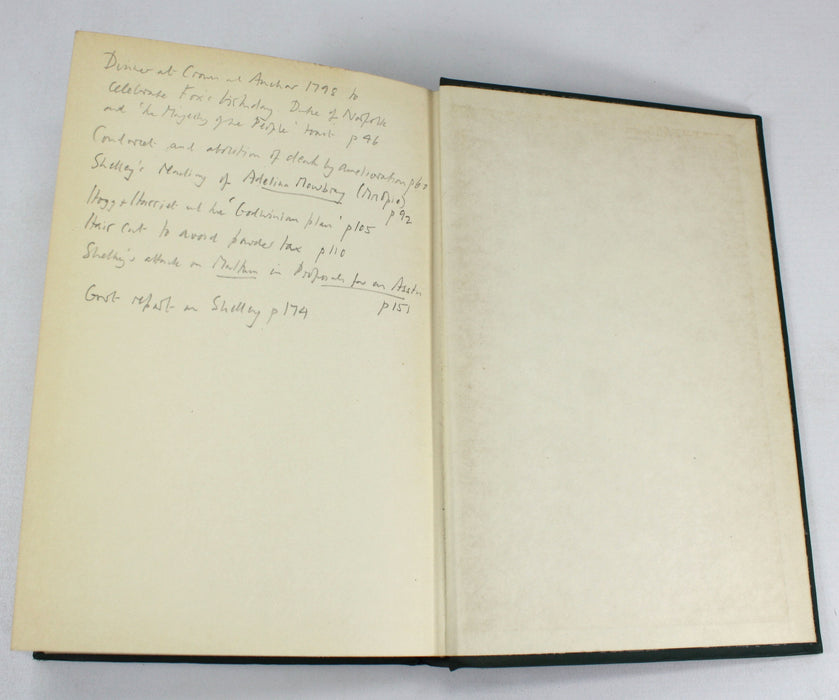 Dinner at Crown and Anchor 1798 to
celebrate Fox's birthday Duke of Norfolk
and 'the Majesty of the People' toast p 46
Condorcet and abolition of death by amelioration p 60
Shelley's reading of Adeline Mowbray (Mrs Opie)
p 92
Hogg + Harriet and the 'Godwinian plan' p 105
Hair cut to avoid powder tax p 110
Shelley's attack on Malthus in Proposals for an Assn
p 151
Govt report on Shelley p 174